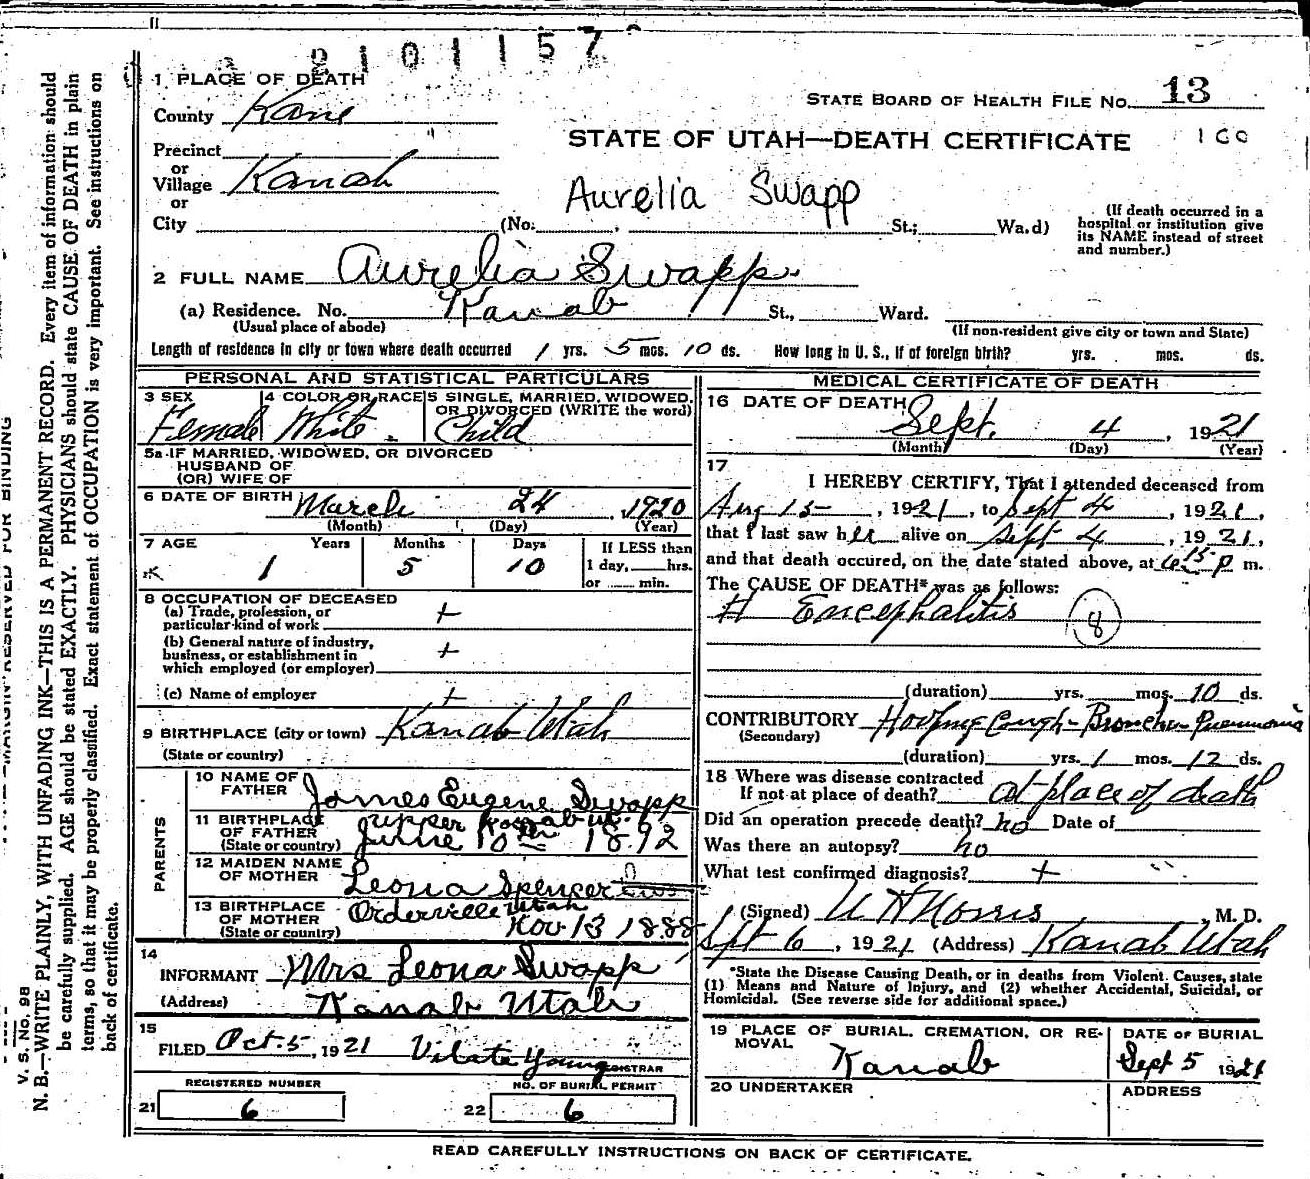 2101157
1 PLACE OF DEATH
County Kane
STATE BOARD OF HEALTH FILE NO. 13
STATE OF UTAH—DEATH CERTIFICATE
Precinct
or
Village Kanab
or
Aurelia Swapp
City (No. , St.; Wa.d)
(If death occurred in a hospital or institution give its NAME instead of street and number.)
2 FULL NAME Aurelia Swapp.
(a) Residence. No. Kanab St., Ward.
(Usual place of abode) (If non-resident give city or town and State)
Length of residence in city or town where death occurred 1 yrs. 5 mos. 10 ds. How long in U. S., if of foreign birth? yrs. mos. ds.
PERSONAL AND STATISTICAL PARTICULARS
3 SEX Female
4 COLOR OR RACE White.
5 SINGLE, MARRIED, WIDOWED, OR DIVORCED (WRITE the word) Child
5a IF MARRIED, WIDOWED, OR DIVORCED
HUSBAND OF
(OR) WIFE OF
6 DATE OF BIRTH March 24, 1920
(Month) (Day) (Year)
7 AGE Years Months Days If LESS than
1 5 10 1 day, hrs.
or min.
8 OCCUPATION OF DECEASED
(a) Trade, profession, or
particular kind of work +
(b) General nature of industry,
business, or establishment in
which employed (or employer) +
(c) Name of employer +
9 BIRTHPLACE (city or town) Kanab Utah
(State or country)
PARENTS
10 NAME OF FATHER James Eugene Swapp
11 BIRTHPLACE OF FATHER upper Kanab ut.
(State or country) June 10th 1892
12 MAIDEN NAME OF MOTHER Leona Spencer
13 BIRTHPLACE OF MOTHER Orderville Utah
(State or country) Nov 13 1888
14
INFORMANT Mrs Leona Swapp
(Address) Kanab Utah
15
FILED Oct 5, 1921 Vilate Young REGISTRAR
REGISTERED NUMBER NO. OF BURIAL PERMIT
21 6 22 6
MEDICAL CERTIFICATE OF DEATH
16 DATE OF DEATH Sept. 4, 1921
(Month) (Day) (Year)
17
I HEREBY CERTIFY, That I attended deceased from
Aug 15, 1921, to Sept 4, 1921,
that I last saw her alive on Sept 4, 1921,
and that death occured, on the date stated above, at 6 15 P m.
The CAUSE OF DEATH* was as follows:
Encephalitis 8
(duration) yrs. mos. 10 ds.
CONTRIBUTORY Hooping Cough - Broncho Pneumonia
(Secondary)
(duration) yrs. 1 mos. 12 ds.
18 Where was disease contracted
If not at place of death? at place of death
Did an operation precede death? no Date of
Was there an autopsy? no
What test confirmed diagnosis? +
(Signed) Morris, M. D.
Spt 6, 1921 (Address) Kanab Utah
*State the Disease Causing Death, or in deaths from Violent Causes, state
(1) Means and Nature of Injury, and (2) whether Accidental, Suicidal, or
Homicidal. (See reverse side for additional space.)
19 PLACE OF BURIAL, CREMATION, OR REMOVAL Kanab
DATE OF BURIAL Sept 5 1921
20 UNDERTAKER ADDRESS
READ CAREFULLY INSTRUCTIONS ON BACK OF CERTIFICATE.
MARGIN RESERVED FOR BINDING
V. S. No. 98
N. B.—WRITE PLAINLY, WITH UNFADING INK—THIS IS A PERMANENT RECORD. Every item of information should
be carefully supplied. AGE should be stated EXACTLY. PHYSICIANS should state CAUSE OF DEATH in plain
terms, so that it may be properly classified. Exact statement of OCCUPATION is very important. See instructions on
back of certificate.